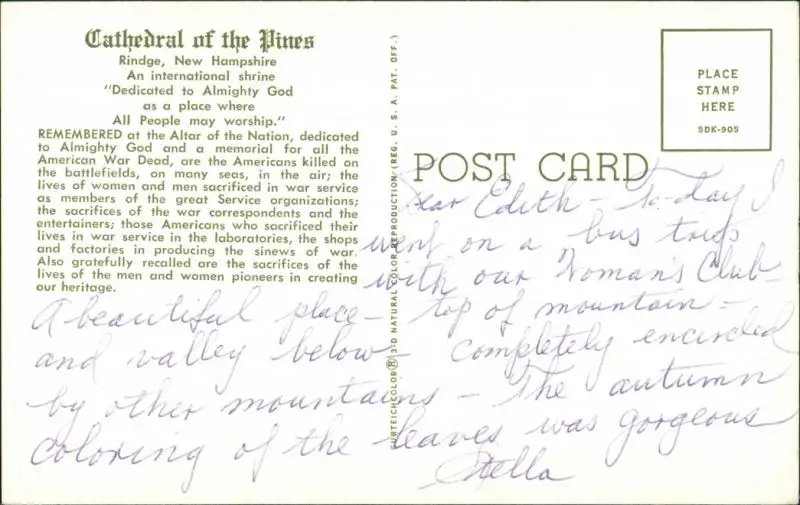 Cathedral of the Pines
Rindge, New Hampshire
An international shrine
"Dedicated to Almighty God
as a place where
All People may worship."
REMEMBERED at the Altar of the Nation, dedicated
to Almighty God and a memorial for all the
American War Dead, are the Americans killed on
the battlefields, on many seas, in the air; the
lives of women and men sacrificed in war service
as members of the great Service organizations;
the sacrifices of the war correspondents and the
entertainers; those Americans who sacrificed their
lives in war service in the laboratories, the shops
and factories in producing the sinews of war.
Also gratefully recalled are the sacrifices of the
lives of the men and women pioneers in creating
our heritage.
CURTEICHCOLOR® 3-D NATURAL COLOR REPRODUCTION (REG. U. S. A. PAT. OFF.)
PLACE
STAMP
HERE
5DK-905
POST CARD
Dear Edith - To-day I
went on a bus trip
with our Woman's Club -
A beautiful place - top of mountain -
and valley below - completely encircled
by other mountains - The autumn
coloring of the leaves was gorgeous
Stella